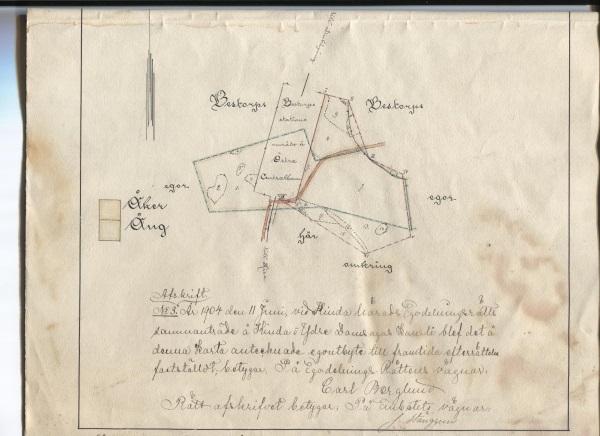 Beskorps
Beskorps
Beskorps
stations
område å
Östra
Centralbanan
egor
egor
Åker
Äng
här
omkring
Afskrift.
No 3. År 1904 den 11 Juni, vid Kinda Härads Egodelningsrätts
sammanträde å Kinda o Ydre Domsagas Kansli blef det å
denna Karta antecknade egoutbyte till framtida efterrättelse
fastställdt, betygar. På Egodelnings Rättens vägnar:
Carl Berglund
Rätt afskrifvet betygar; På Embetets vägnar: